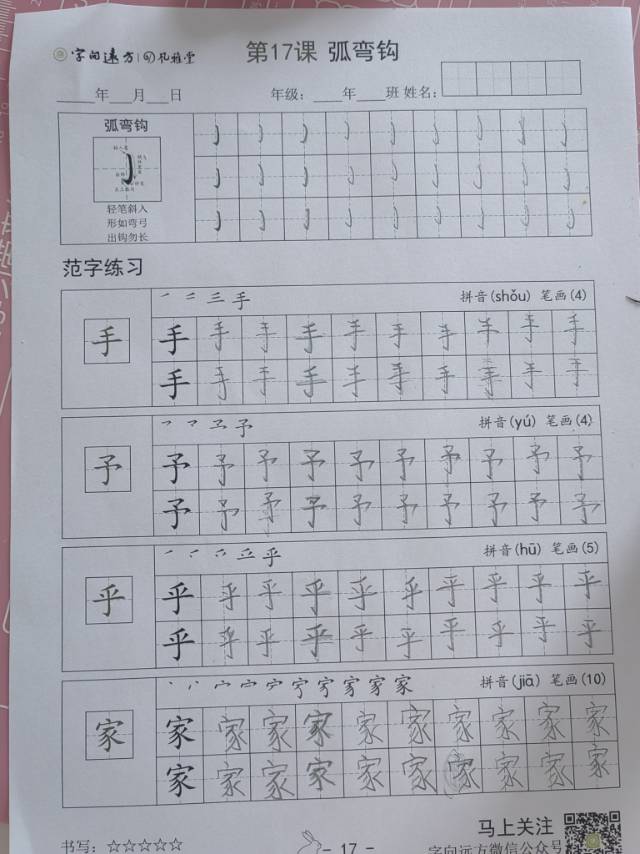 字向远方
第17课 弧弯钩
年 月 日
年级： 年 班 姓名：
弧弯钩
轻笔斜入
形如弯弓
出钩勿长
范字练习
三手
拼音(shǒu) 笔画(4)
手
手手手手手手手手手手
手手手手手手手手手手
予
拼音(yú) 笔画(4)
予
予予予予予予予予予予
予予予予予予予予予予
乎
拼音(hū) 笔画(5)
乎
乎乎乎乎乎乎乎乎乎乎
乎乎乎乎乎乎乎乎乎乎
家
拼音(jiā) 笔画(10)
家
家家家家家家家家家家
家家家家家家家家家家
书写：☆☆☆☆☆
- 17 -
马上关注
字向远方微信公众号